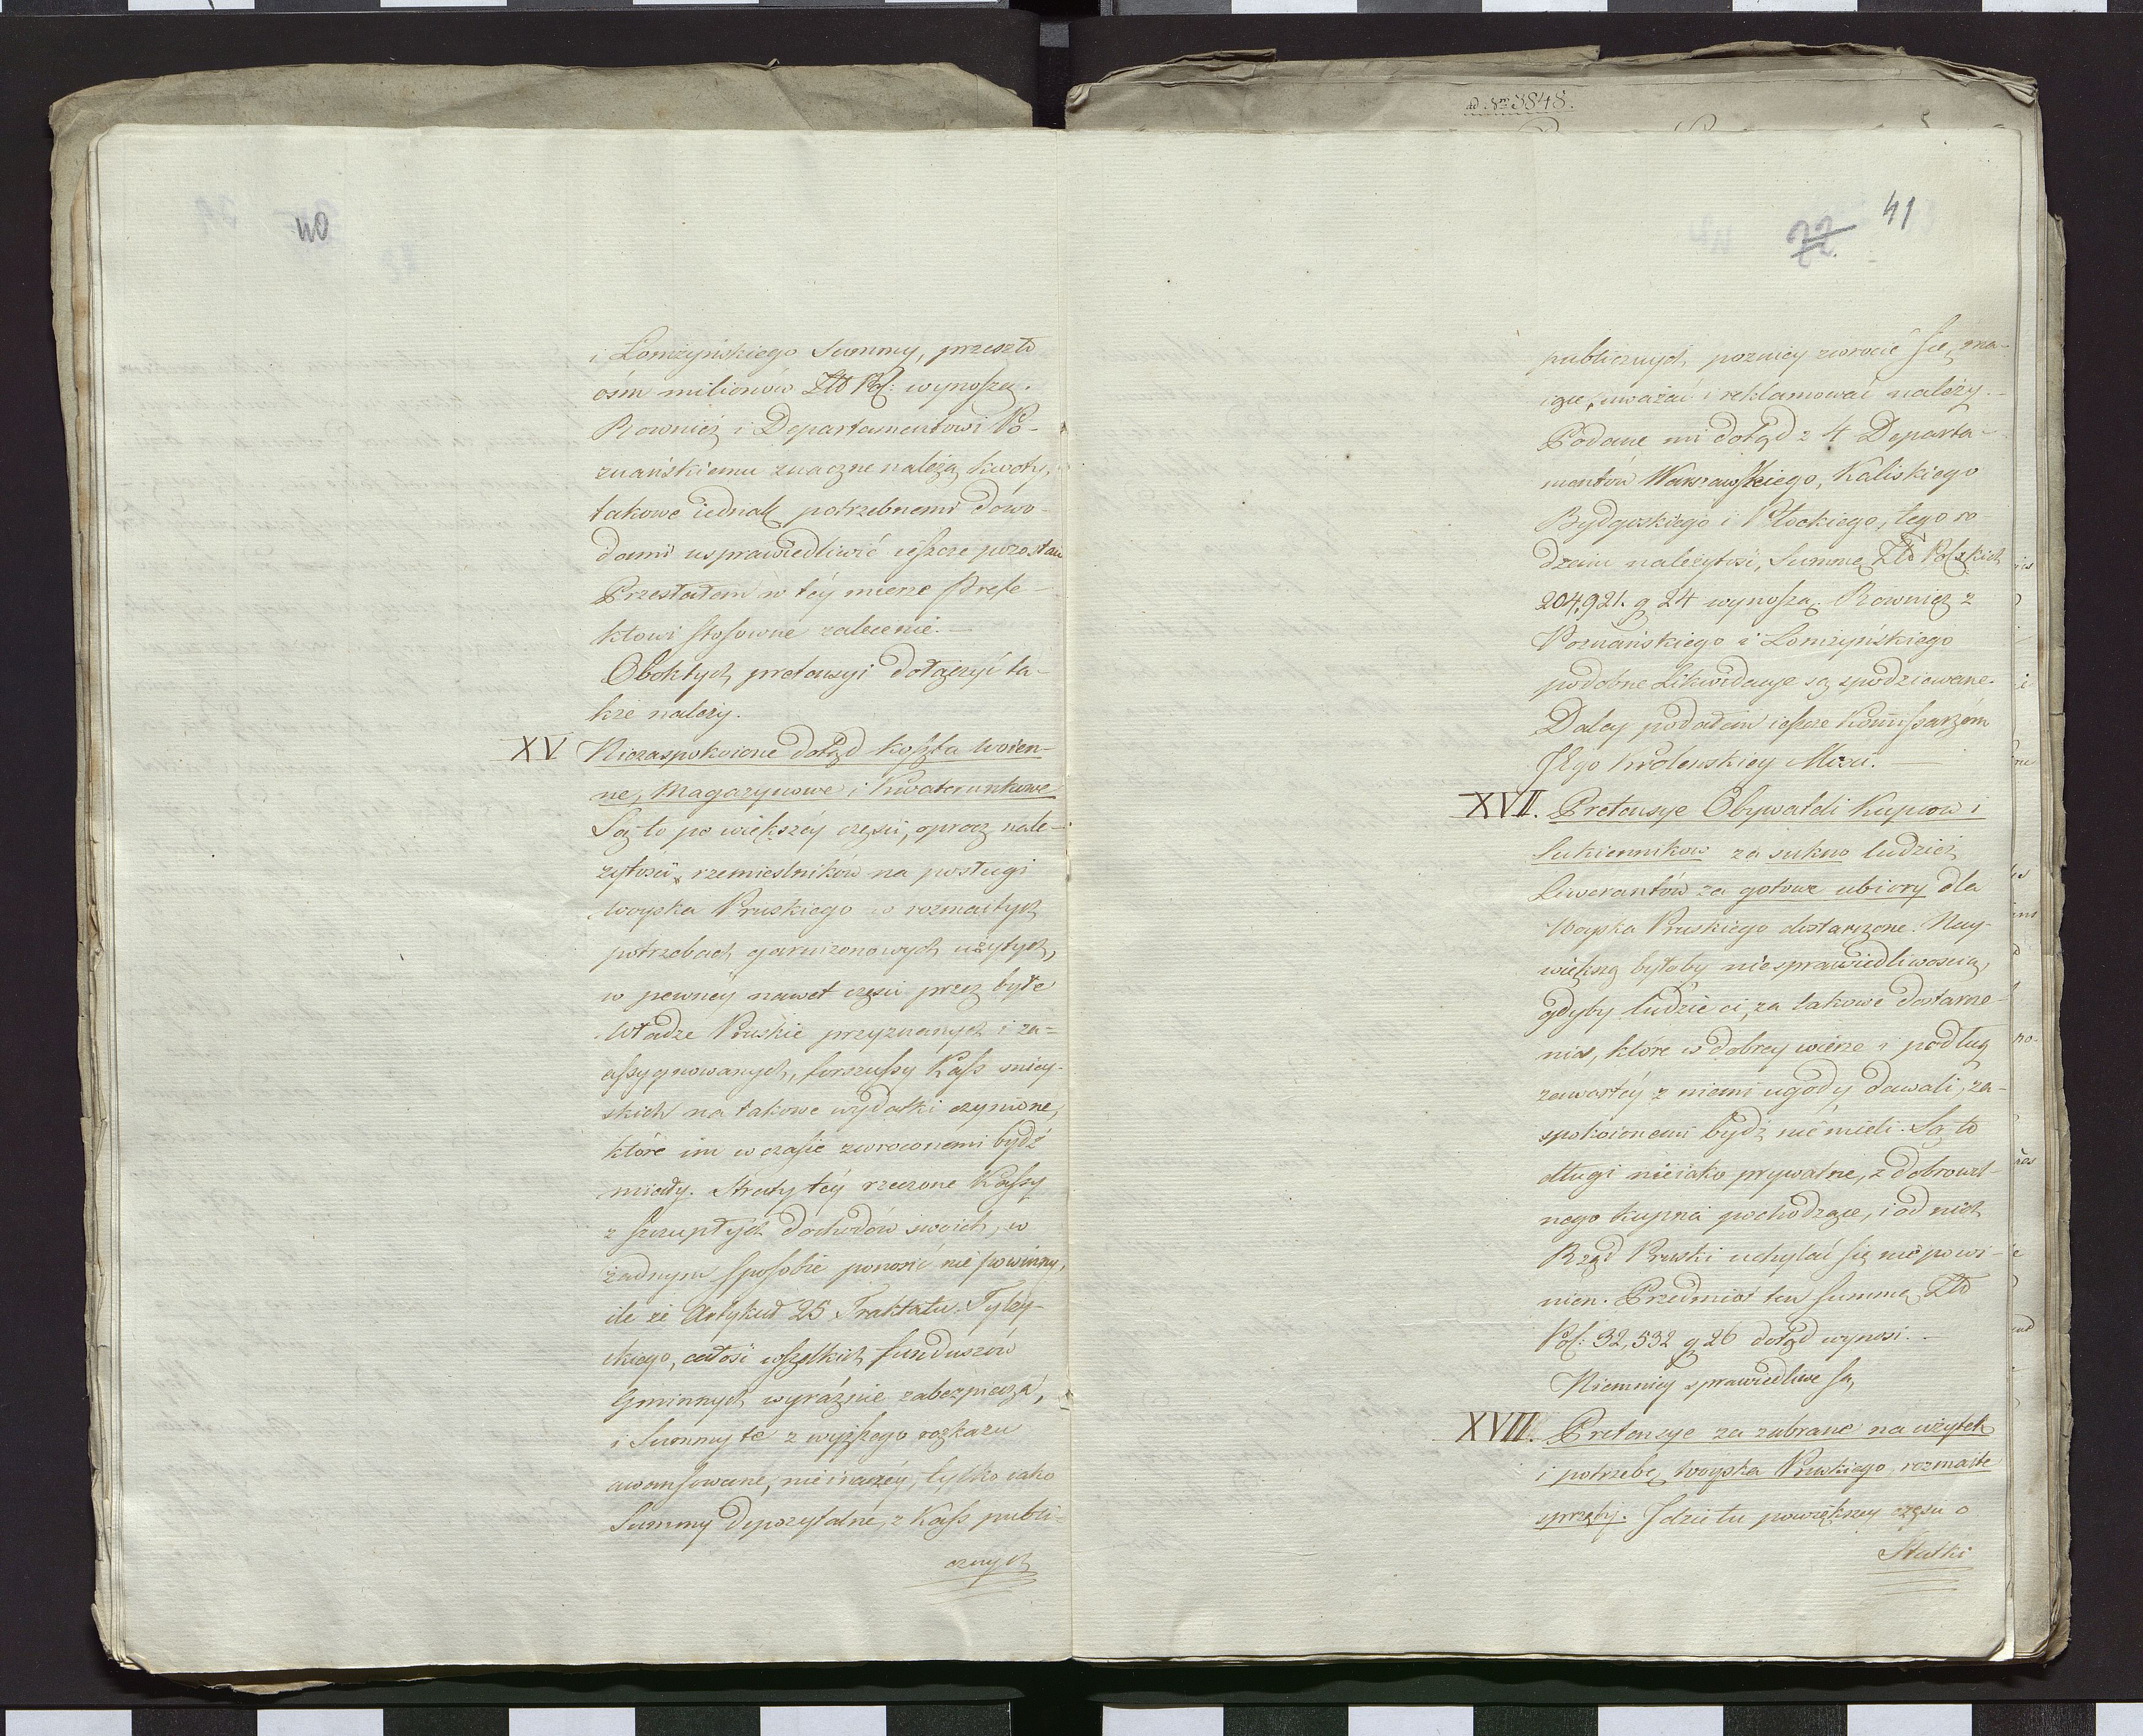 ad. Nro 3848.
40
i Lomżyńskiego Summy, przeszło
ośm milionów Złt Pol: wynoszą.
Rownież i Departamentowi Po-
znańskiemu znaczne należą kwoty,
takowe iednak potrzebnemi dowo-
dami usprawiedliwić ieszcze pozostaie
Przesłałem w téy mierze Prefe-
ktowi stosowne zalecenie.—
Obok tych pretensyi dołączyć ta-
kże należy.
XV Niezaspokoione dotąd koszta woien-
ne, Magazynowe i Kwaterunkowe
Są to po większéy części, oprocz nale-
żytości rzemieslników na posługi
woyska Pruskiego w rozmaitych
potrzebach garnizonowych użytych,
w pewnéy nawet części przez byłe
Władze Pruskie przyznanych i za-
assygnowanych, forszussy Kass miey-
skich na takowe wydatki czynione,
które im w czasie zwroconemi bydź
miały. Straty téy rzeczone Kassy
z szczupłych dochodów swoich, w
żadnym sposobie ponosić nie powinny,
ile że Artykuł 25 Traktatu Tylży-
ckiego, całość wszelkich funduszów
Gminnych wyraźnie zabezpiecza,
i Summy te z wyższego rozkazu
awansowane, nie inaczéy, tylko iako
Summy depozytalne, z Kass publi-
cznych
41
22.
publicznych, pozniey zwrocić się ma-
iące, uważać i reklamować należy.—
Podane mi dotąd z 4 Departa-
mentów Warszawskiego, Kaliskiego
Bydgoskiego i Płockiego, tego ro-
dzaiu należytości, Summę Złt Polskich
204,921. g 24 wynoszą. Rownież z
Poznańskiego i Lomżyńskiego
podobne Likwidacye są spodziewane.
Daley podałem ieszcze Kommissarzom
JEgo Krolewskiey Mosci.—
XVII. Pretensye Obywateli Kupcow i
Sukiennikow za sukno tudzież
Liwerantów za gotowe ubiory dla
Woyska Pruskiego dostarczone. Nay-
większą byłoby niesprawiedliwością,
gdyby ludzie ci, za takowe dostarcze-
nia, ktore w dobrey wierze i podług
zawartéy z niemi ugody dawali, za-
spokoionemi bydź nie mieli. Są to
długi nieiako prywatne, z dobrowol-
nego kupna pochodzące, i od nich
Rząd Pruski uchylać się nie powi-
nien. Przedmiot ten summę Złt
Pol: 32,532 g 26 dotąd wynosi.—
Niemniey sprawiedliwe są
XVIII. Pretensye za zabrane na użytek
i potrzebę Woyska Pruskiego rozmaite
sprzęty. Jdzie tu powiększey części o
Statki